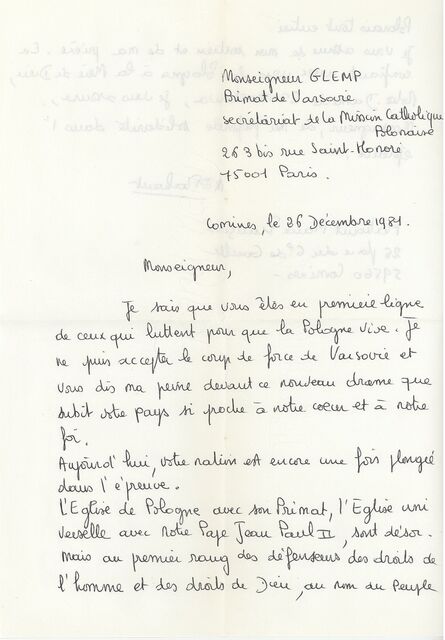 Monseigneur GLEMP
Primat de Varsovie
secrétariat de la Mission Catholique
Polonaise
263 bis rue Saint-Honoré
75001 Paris.
Comines, le 26 Décembre 1981.
Monseigneur,
Je sais que vous êtes en première ligne
de ceux qui luttent pour que la Pologne vive. Je
ne puis accepter le coup de force de Varsovie et
vous dis ma peine devant ce nouveau drame que
subit votre pays si proche à notre coeur et à notre
foi.
Aujourd'hui, votre nation est encore une fois plongée
dans l'épreuve.
L'Eglise de Pologne avec son Primat, l'Eglise uni
verselle avec notre Pape Jean Paul II, sont désor-
mais au premier rang des défenseurs des droits de
l'homme et des droits de Dieu, au nom du Peuple